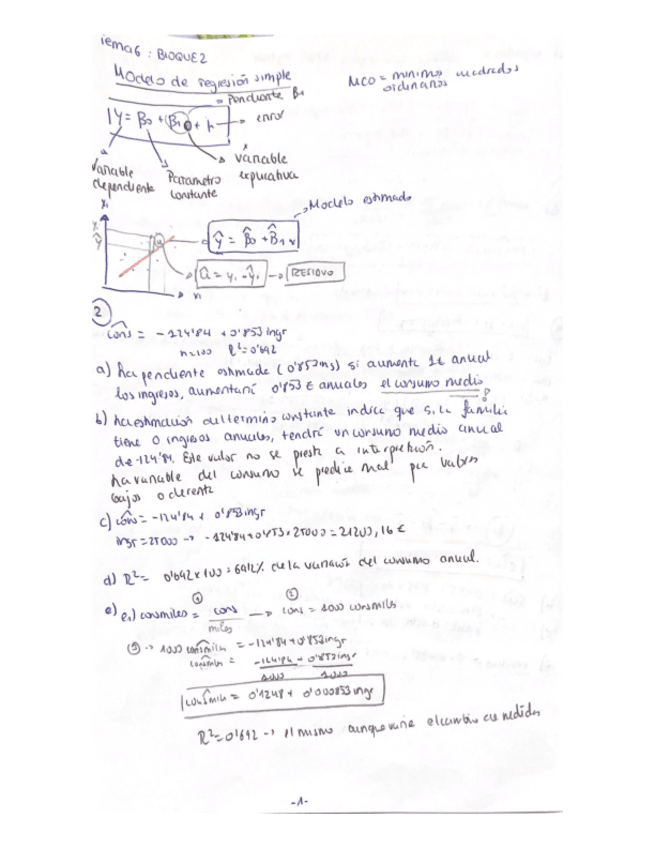 Tema 6: BLOQUE 2
Modelo de regresión simple
MCO = mínimos cuadrados ordinarios
Pendiente β1
Y = β0 + β1 + → error
Variable dependiente
Parametro constante
x variable explicativa
Modelo estimado
ŷ = β̂0 + β̂1 x
û = yi - ŷi → RESIDUO
2
cons = -124'84 + 0'853 ingr
n=100 R²=0'692
a) La pendiente estimada (0'853) si aumenta 1€ anual
los ingresos, aumentará 0'853 € anuales el consumo medio
b) La estimación del termino constante indica que si la familia
tiene 0 ingresos anuales, tendrá un consumo medio anual
de -124'84. Este valor no se presta a interpretación.
La variable del consumo se predice mal por valores
bajos
c) cons = -124'84 + 0'853 ingr
ingr = 25000 → -124'84 + 0'853 · 25000 = 21200,16 €
d) R² = 0'692 x 100 = 69'2% de la variación del consumo anual.
① ②
e) e1) consmiles = cons / miles → cons = 1000 consmiles
① → 1000 consmiles = -124'84 + 0'853 ingr
consmiles = -124'84 / 1000 + 0'853 ingr / 1000
consmiles = 0'1248 + 0'000853 ingr
R² = 0'692 → el mismo aunque varíe el cambio de medida
-1-